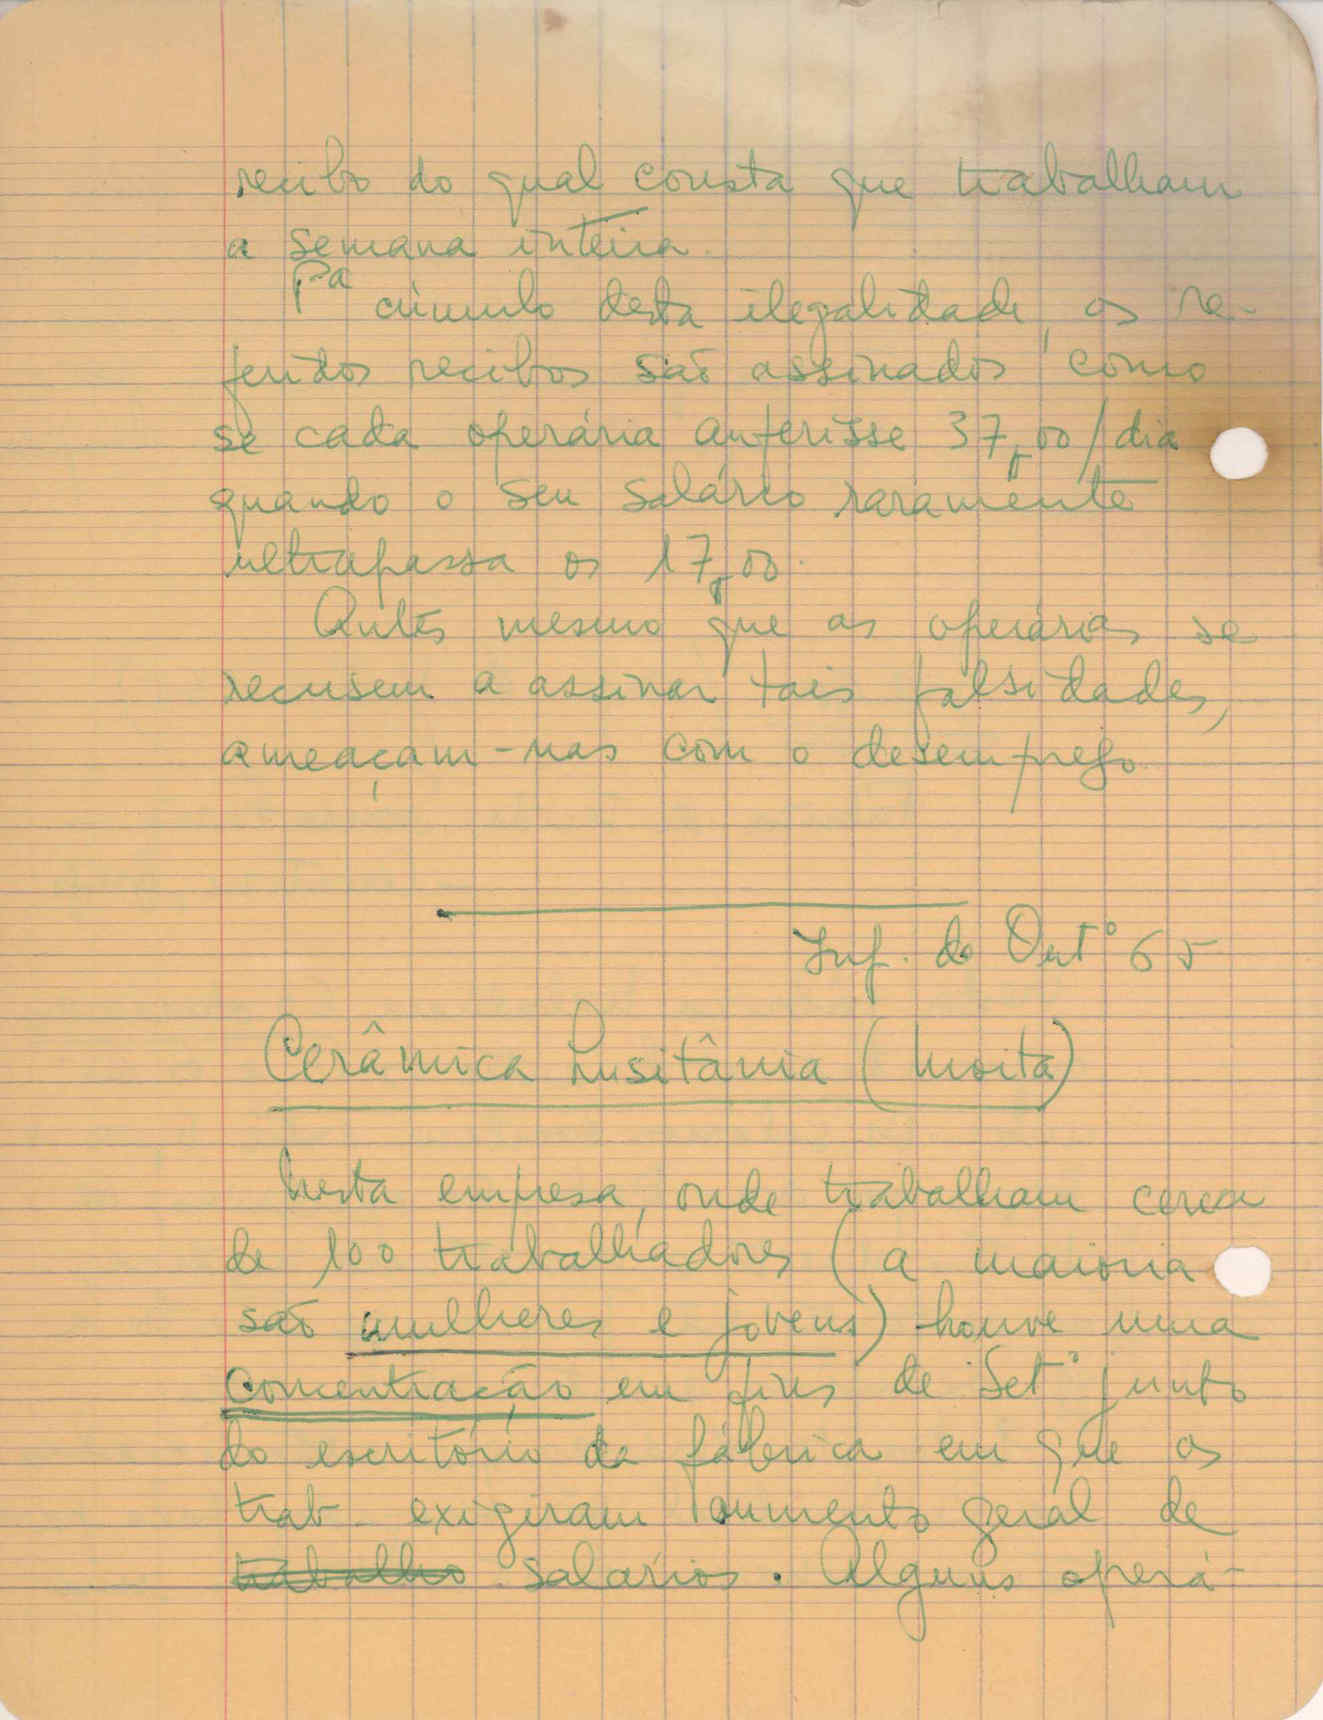 recibo do qual consta que trabalham
a semana inteira.
Pª cúmulo desta ilegalidade, os re-
feridos recibos são assinados como
se cada operária auferisse 37,00/dia
quando o seu salário raramente
ultrapassa os 17,00.
Antes mesmo que as operárias se
recusem a assinar tais falsidades,
ameaçam-nas com o desemprego.
Inf. de Outº 65
Cerâmica Lusitânia (Moita)
Nesta empresa, onde trabalham cerca
de 100 trabalhadores (a maioria
são mulheres e jovens) houve uma
concentração em fins de Setº junto
do escritório da fábrica em que os
trab. exigiram aumento geral de
trabalho salários. Alguns operá-